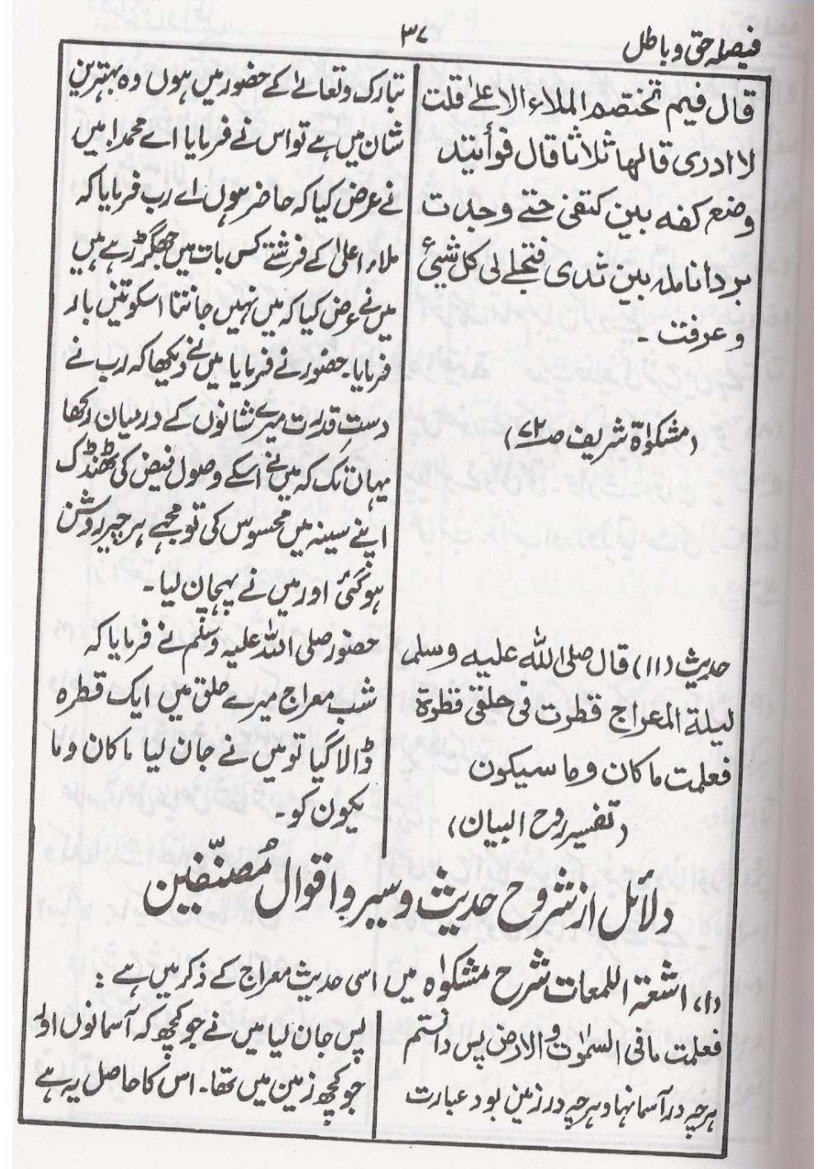 فیصلہ حق و باطل
۳۷
قال فیم تختصم الملاء الاعلیٰ قلت
لا ادری قالھا ثلاثا قال فرأیتہ
وضع کفہ بین کتفی حتے وجدت
برد اناملہ بین ثدی فتجلے لی کل شیئ
وعرفت ۔
(مشکوٰۃ شریف صـ۷۲)
حدیث (۱۱) قال صلی اللہ علیہ وسلم
لیلۃ المعراج قطرت فی حلقی قطرۃ
فعلمت ماکان وما سیکون
(تفسیر روح البیان)
تبارک وتعالےٰ کے حضور میں ہوں وہ بہترین
شان میں ہے تو اس نے فرمایا اے محمد! میں
نے عرض کیا کہ حاضر ہوں اے رب فرمایا کہ
ملاء اعلیٰ کے فرشتے کس بات میں جھگڑ رہے ہیں
میں نے عرض کیا کہ میں نہیں جانتا اسکو تین بار
فرمایا۔ حضور نے فرمایا میں نے دیکھا کہ رب نے
دستِ قدرت میرے شانوں کے درمیان رکھا
یہاں تک کہ میں نے اسکے وصول فیض کی ٹھنڈک
اپنے سینہ میں محسوس کی تو مجھے ہر چیز روشن
ہو گئی اور میں نے پہچان لیا۔
حضور صلی اللہ علیہ وسلم نے فرمایا کہ
شب معراج میرے حلق میں ایک قطرہ
ڈالا گیا تو میں نے جان لیا ماکان وما
یکون کو۔
دلائل از شروح حدیث و سیر و اقوال مُصنّفین
(۱) اشعۃ اللمعات شرح مشکوٰۃ میں اسی حدیث معراج کے ذکر میں ہے :
فعلمت مافی السمٰوٰت والارض پس دانستم
ہر چہ در آسمانہا و ہر چہ در زمین بود عبارت
پس جان لیا میں نے جو کچھ کہ آسمانوں اور
جو کچھ زمین میں تھا۔ اس کا حاصل یہ ہے